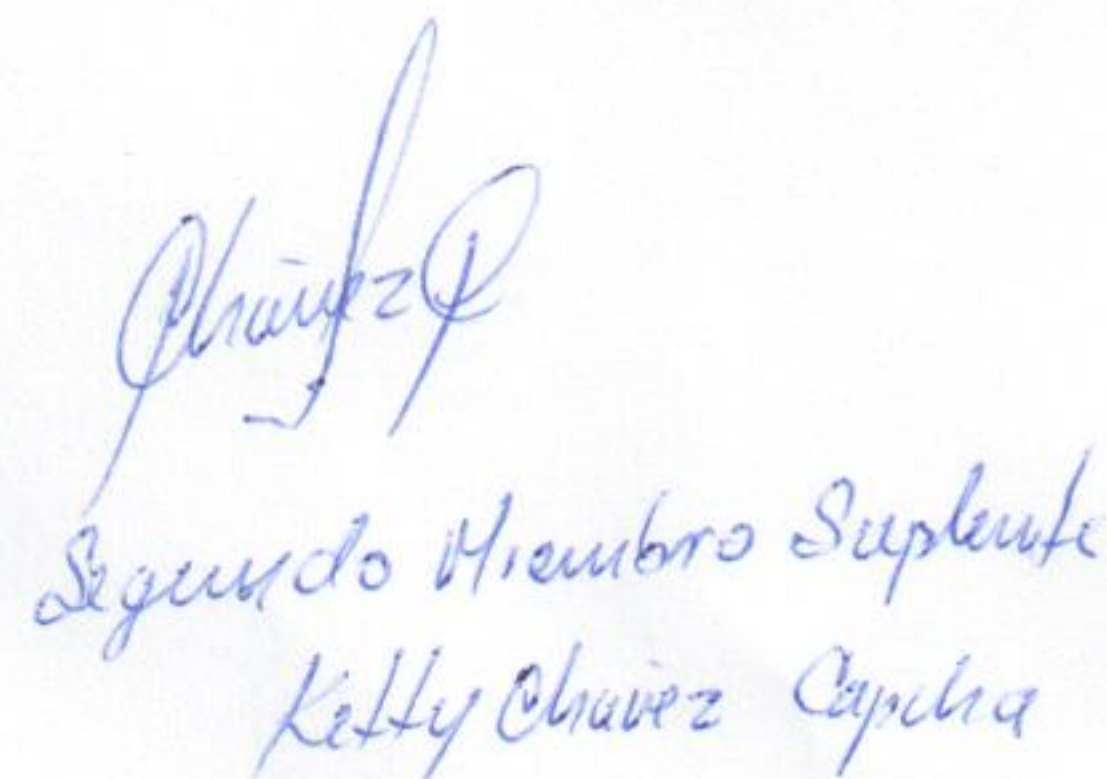 Chávez C
Segundo Miembro Suplente
Ketty Chávez Capcha